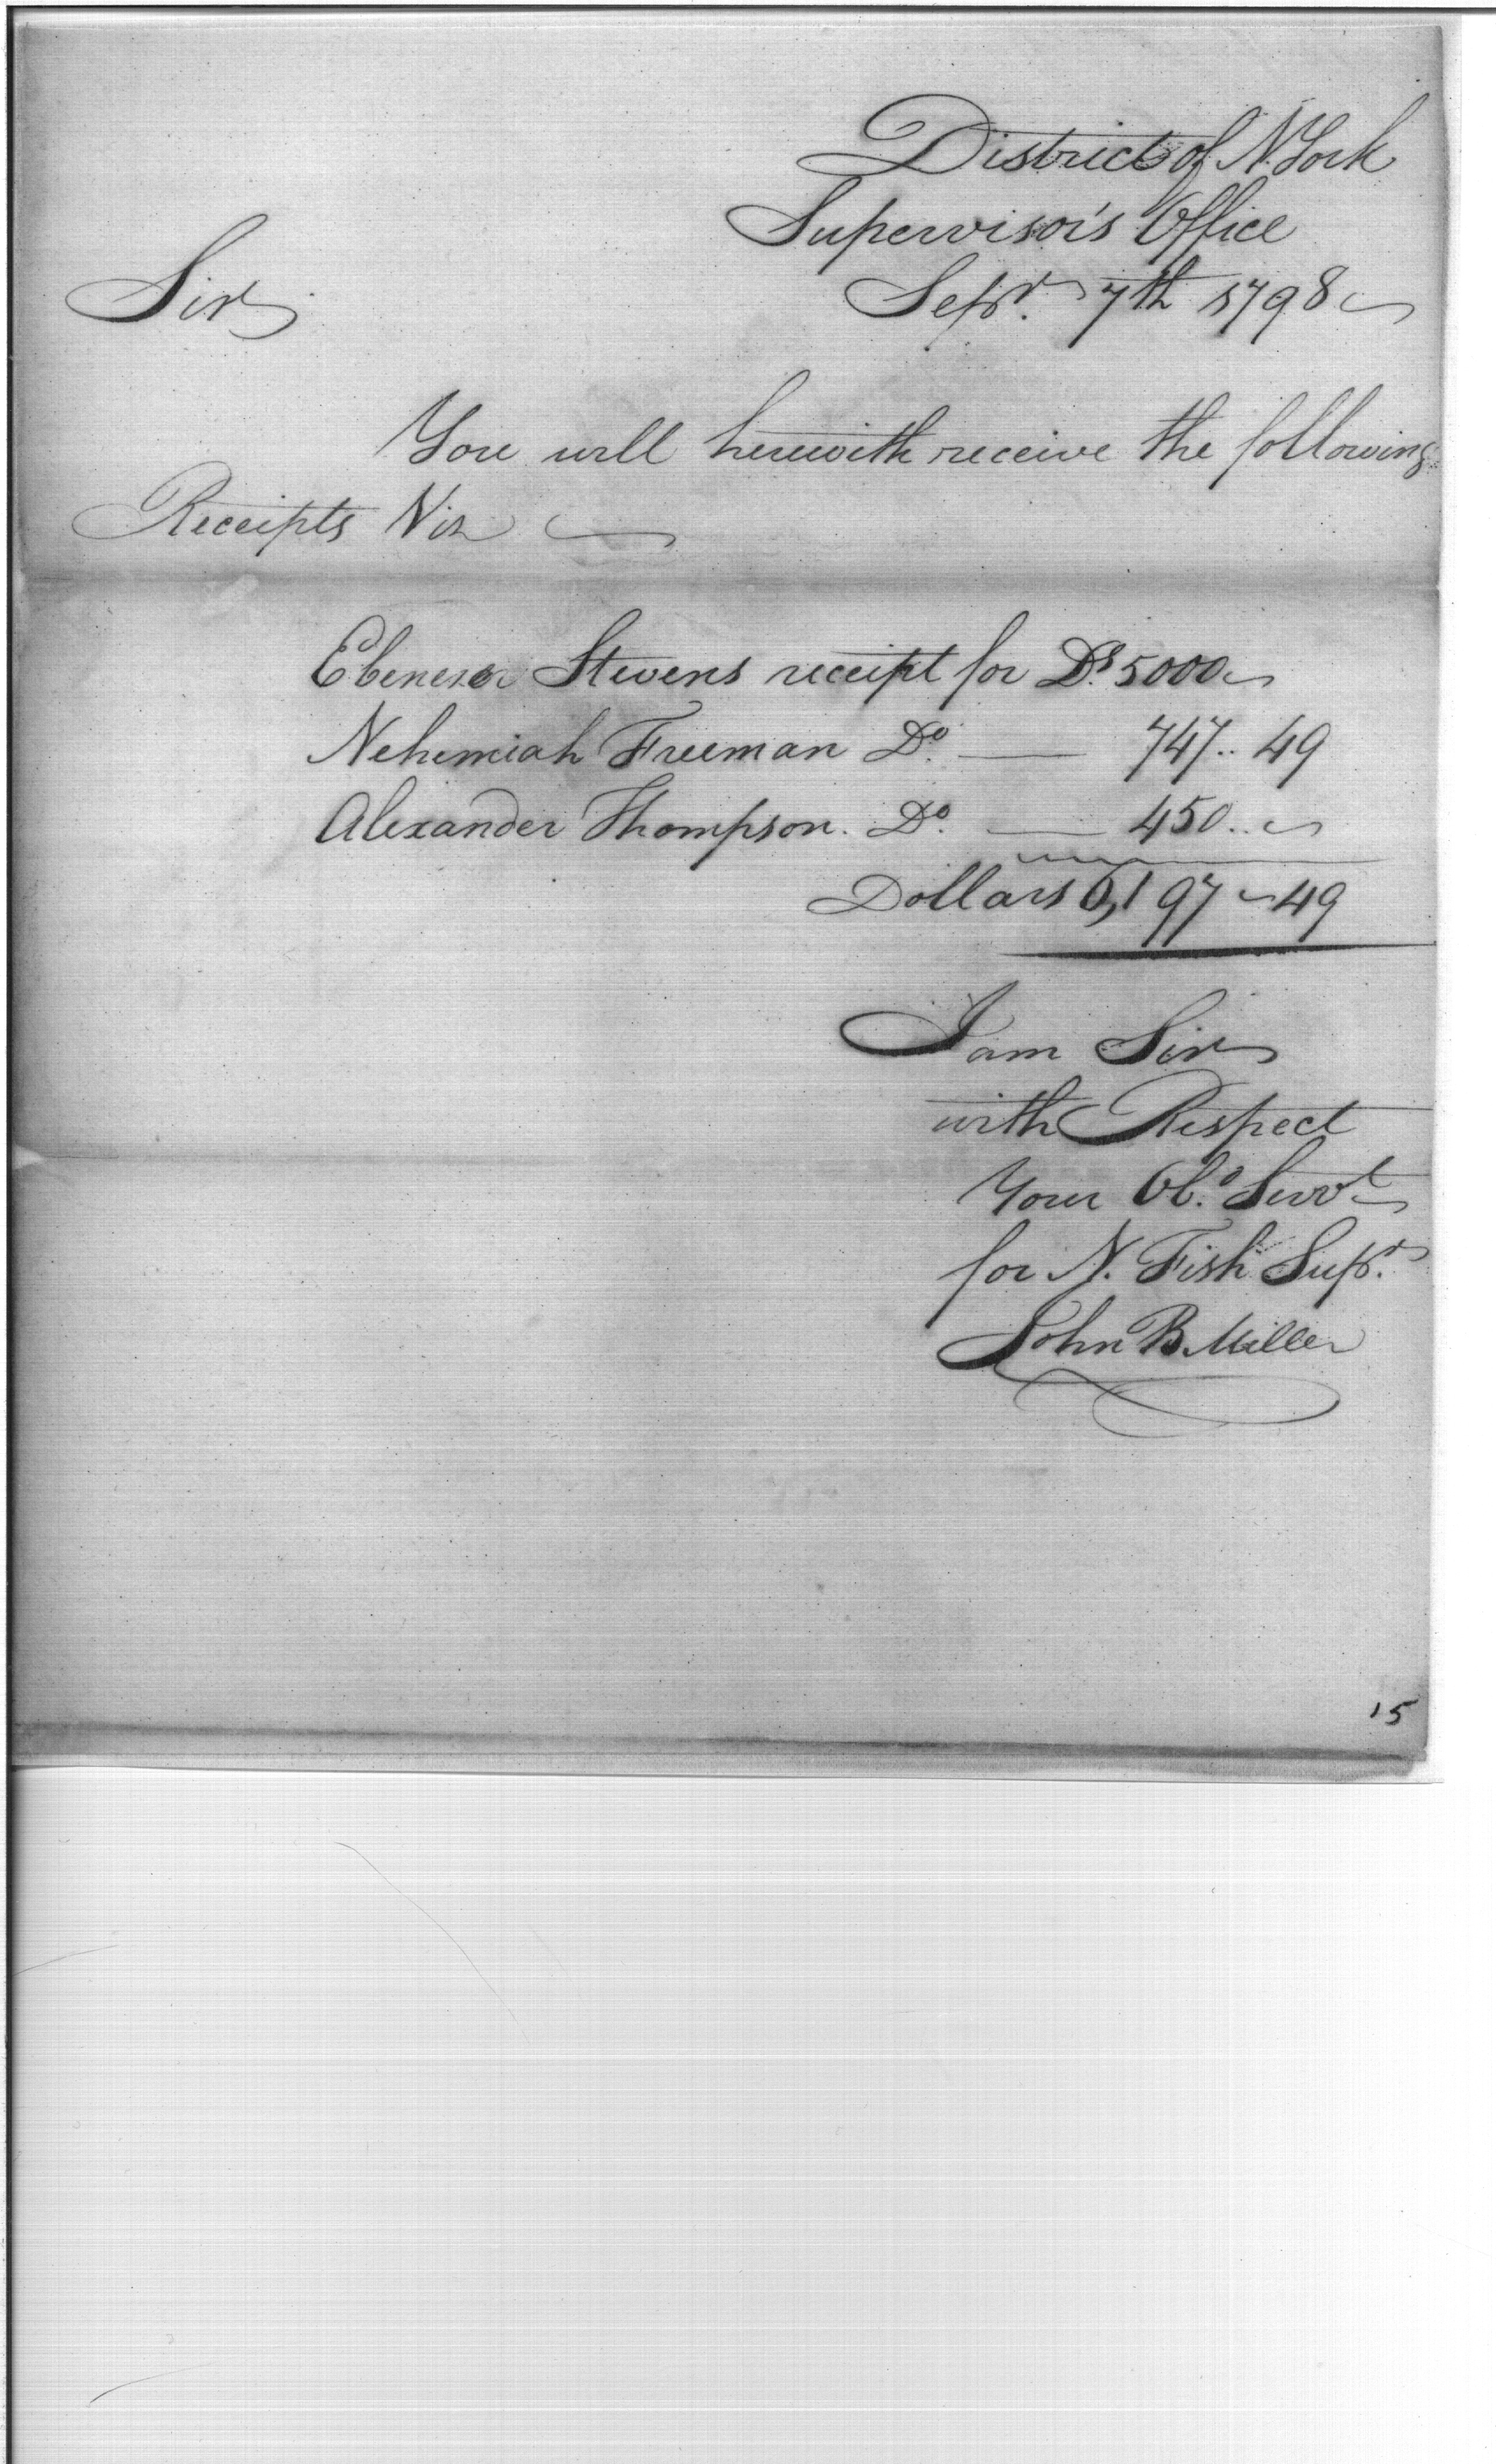 District of N. York
Supervisor's Office
Sepr. 7th 1798
Sir
You will herewith receive the following
Receipts Viz
Ebenezer Stevens receipt for Ds. 5000
Nehemiah Freeman Do. — 747.. 49
Alexander Thompson. Do. — 450..
Dollars 6,197 - 49
I am Sir
with Respect
Your Ob. Servt
for N. Fish Supr.
John B. Miller
15